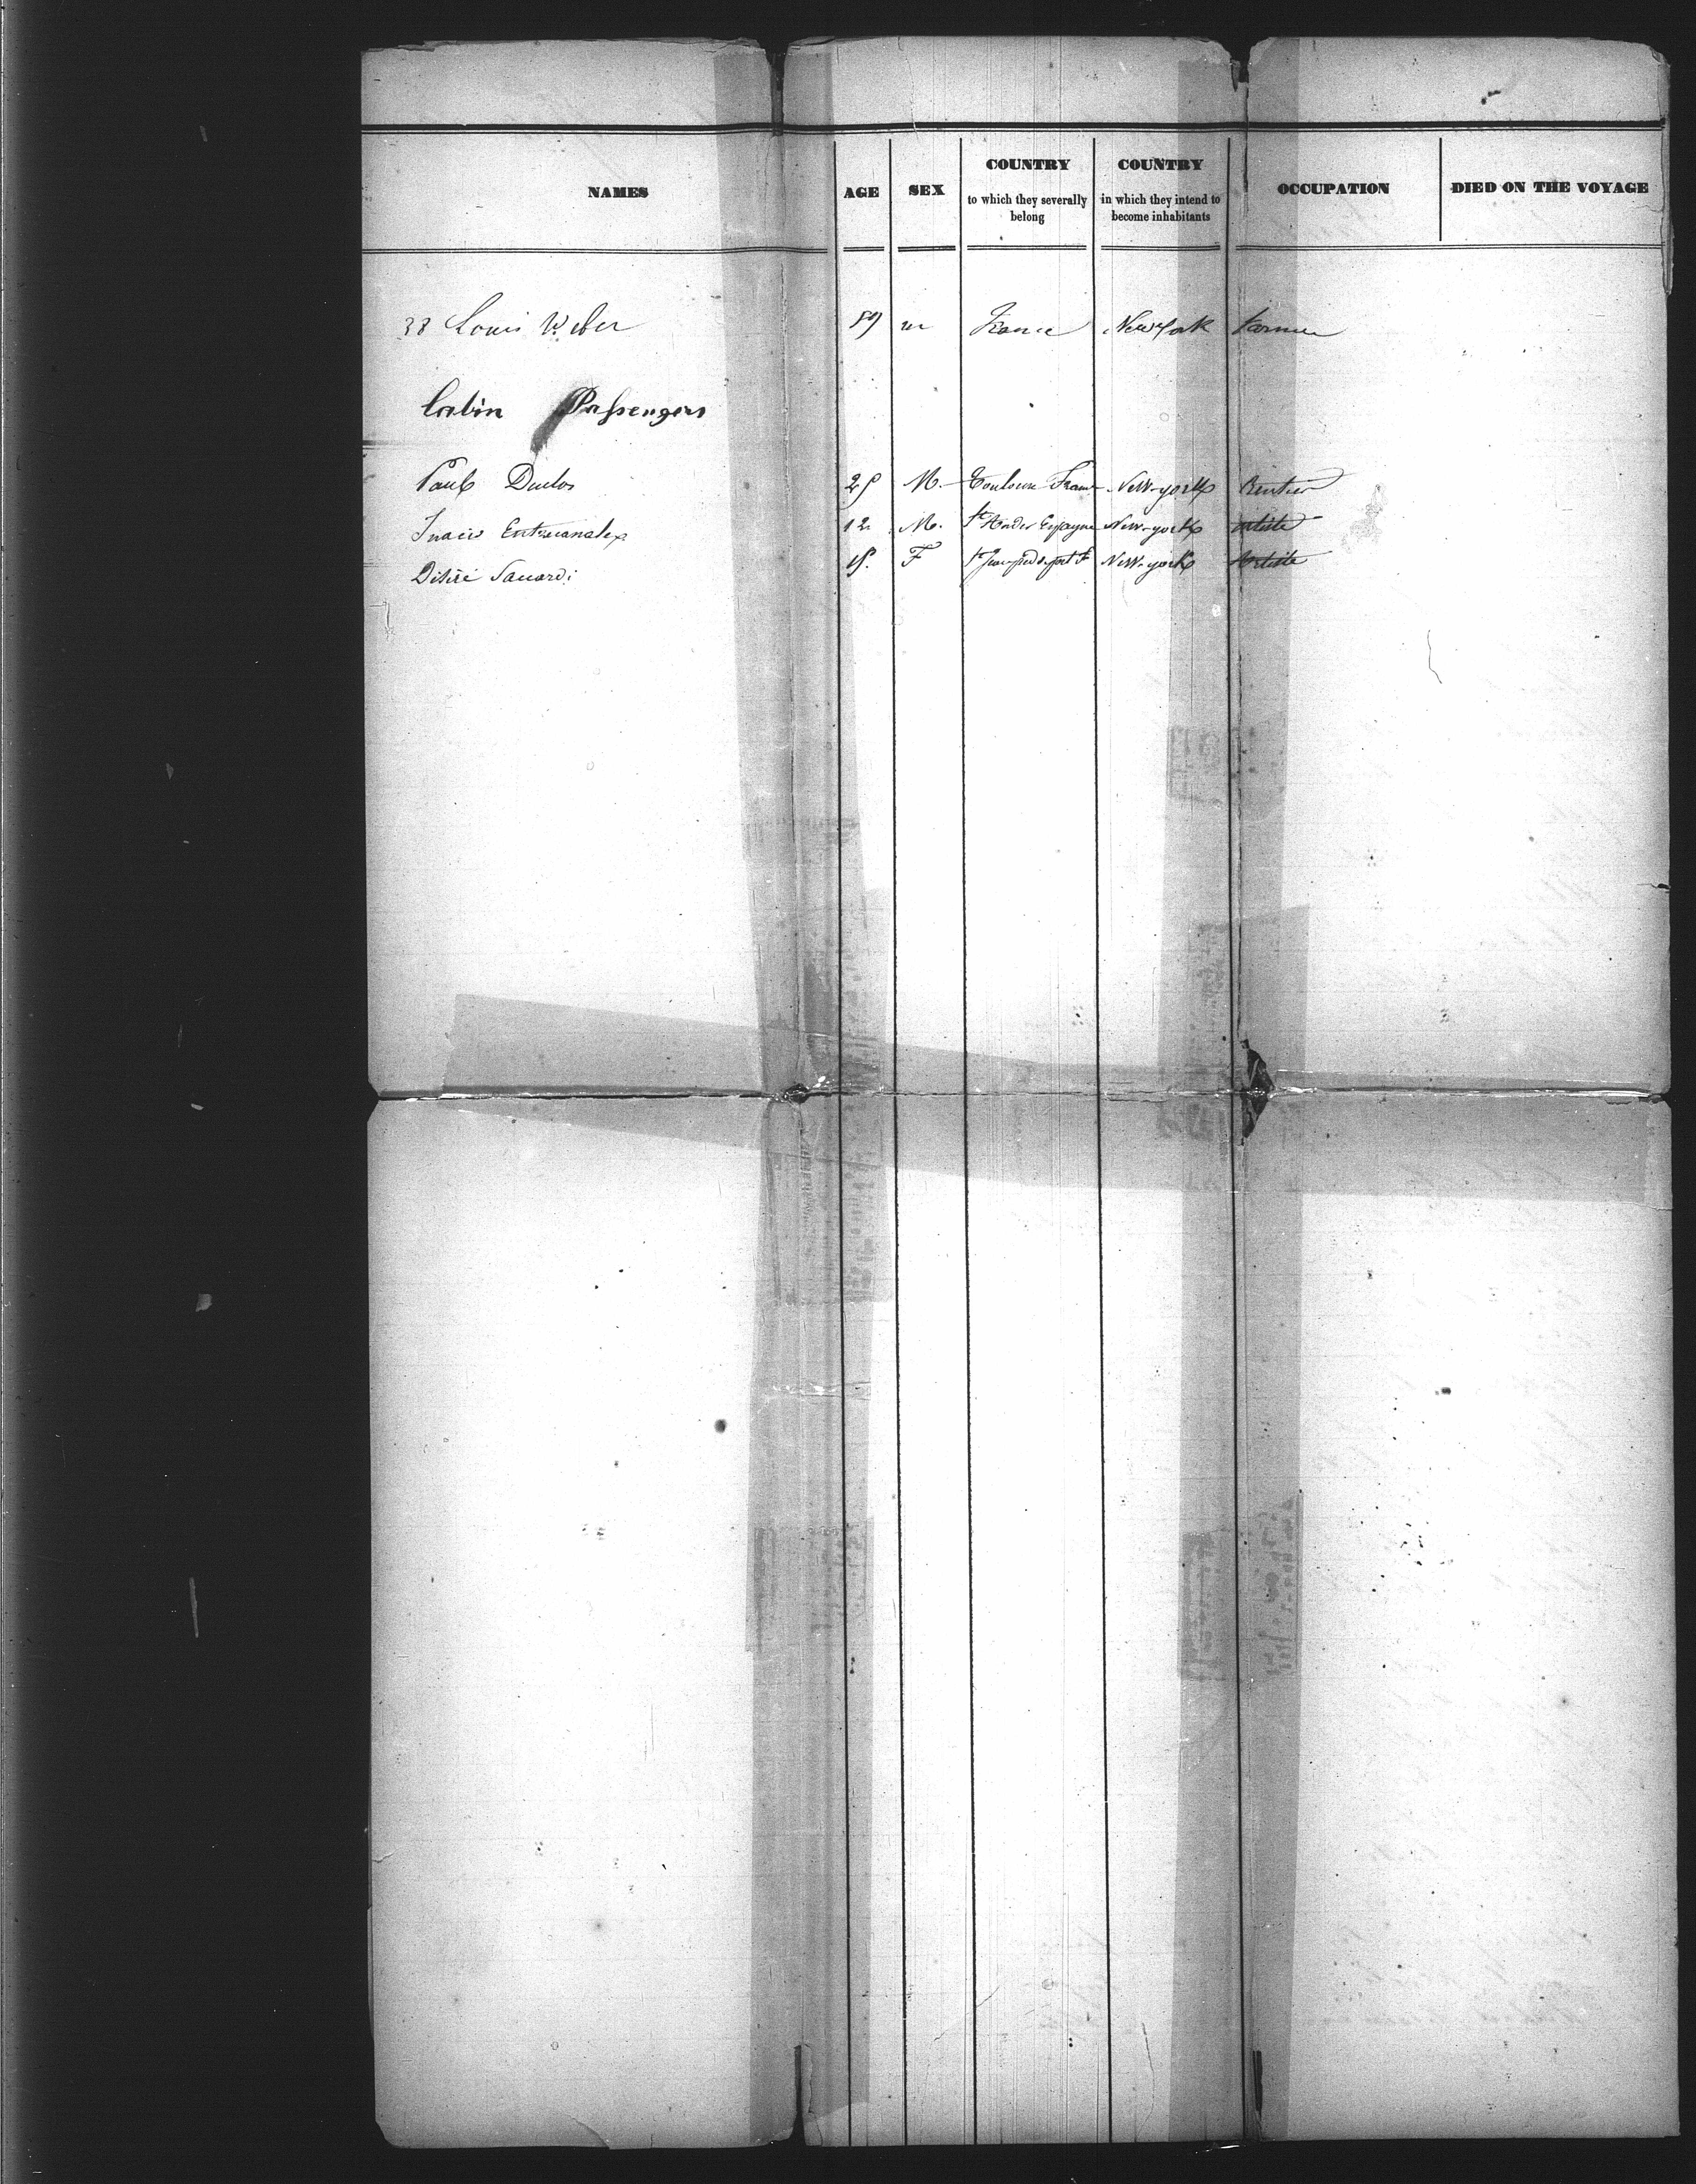 NAMES AGE SEX COUNTRY to which they severally belong COUNTRY in which they intend to become inhabitants OCCUPATION DIED ON THE VOYAGE
38 Louis Weber m France New York Farmer
Cabin Passengers
Paul Duclos M. Toulouse New-york Rentier
12 M. New-york artiste
F New-york Artiste